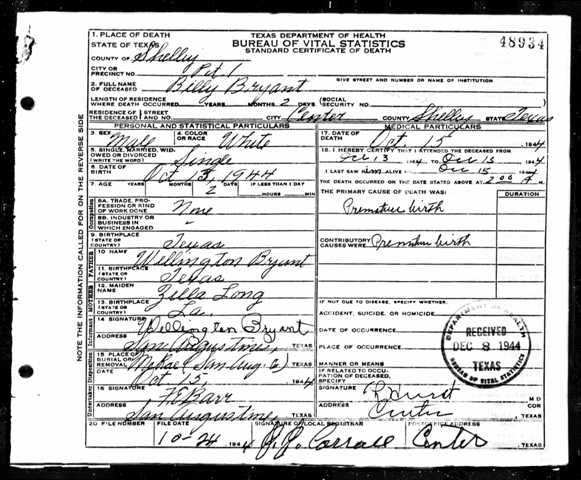 1. PLACE OF DEATH
STATE OF TEXAS
TEXAS DEPARTMENT OF HEALTH
BUREAU OF VITAL STATISTICS
STANDARD CERTIFICATE OF DEATH
48934
COUNTY OF Shelby
CITY OR PRECINCT NO. Pct 1
GIVE STREET AND NUMBER OR NAME OF INSTITUTION
2. FULL NAME OF DECEASED Billy Bryant
LENGTH OF RESIDENCE WHERE DEATH OCCURRED YEARS MONTHS 2 DAYS (SOCIAL SECURITY NO.
RESIDENCE OF THE DECEASED STREET AND NO. CITY Center COUNTY Shelby STATE Texas
PERSONAL AND STATISTICAL PARTICULARS
3. SEX Male 4. COLOR OR RACE White
5. SINGLE, MARRIED, WIDOWED OR DIVORCED (WRITE THE WORD) Single
6. DATE OF BIRTH Oct 13, 1944
7. AGE YEARS MONTHS DAYS 2 IF LESS THAN 1 DAY HOURS MIN
8A. TRADE, PROFESSION OR KIND OF WORK DONE None
8B. INDUSTRY OR BUSINESS IN WHICH ENGAGED
9. BIRTHPLACE (STATE OR COUNTRY) Texas
10. NAME Wellington Bryant
11. BIRTHPLACE (STATE OR COUNTRY) Texas
12. MAIDEN NAME Zella Long
13. BIRTHPLACE (STATE OR COUNTRY) La.
14. SIGNATURE Wellington Bryant
ADDRESS San Augustine, TEXAS
15. PLACE OF BURIAL OR REMOVAL (San Aug. Co) TEXAS
DATE Oct 15 1944
16. SIGNATURE
ADDRESS San Augustine, TEXAS
MEDICAL PARTICULARS
17. DATE OF DEATH Oct 15 1944
18. I HEREBY CERTIFY THAT I ATTENDED THE DECEASED FROM
Oct 13 1944 TO Oct 15 1944
I LAST SAW ALIVE Oct 15 1944
THE DEATH OCCURRED ON THE DATE STATED ABOVE AT 2:00 A M
THE PRIMARY CAUSE OF DEATH WAS: DURATION
Premature birth
CONTRIBUTORY CAUSES WERE: Premature birth
IF NOT DUE TO DISEASE, SPECIFY WHETHER:
ACCIDENT, SUICIDE, OR HOMICIDE
DATE OF OCCURRENCE
PLACE OF OCCURRENCE
MANNER OR MEANS
IF RELATED TO OCCUPATION OF DECEASED, SPECIFY
SIGNATURE Hurst M D COR
ADDRESS Center TEXAS
DEPARTMENT OF HEALTH
RECEIVED
DEC 8 1944
TEXAS
BUREAU OF VITAL STATISTICS
20. FILE NUMBER FILE DATE SIGNATURE OF LOCAL REGISTRAR POSTOFFICE ADDRESS
10-24 1944 Center, TEXAS
NOTE THE INFORMATION CALLED FOR ON THE REVERSE SIDE
Occupation
FATHER
MOTHER
Informant
Undertaker Disposition